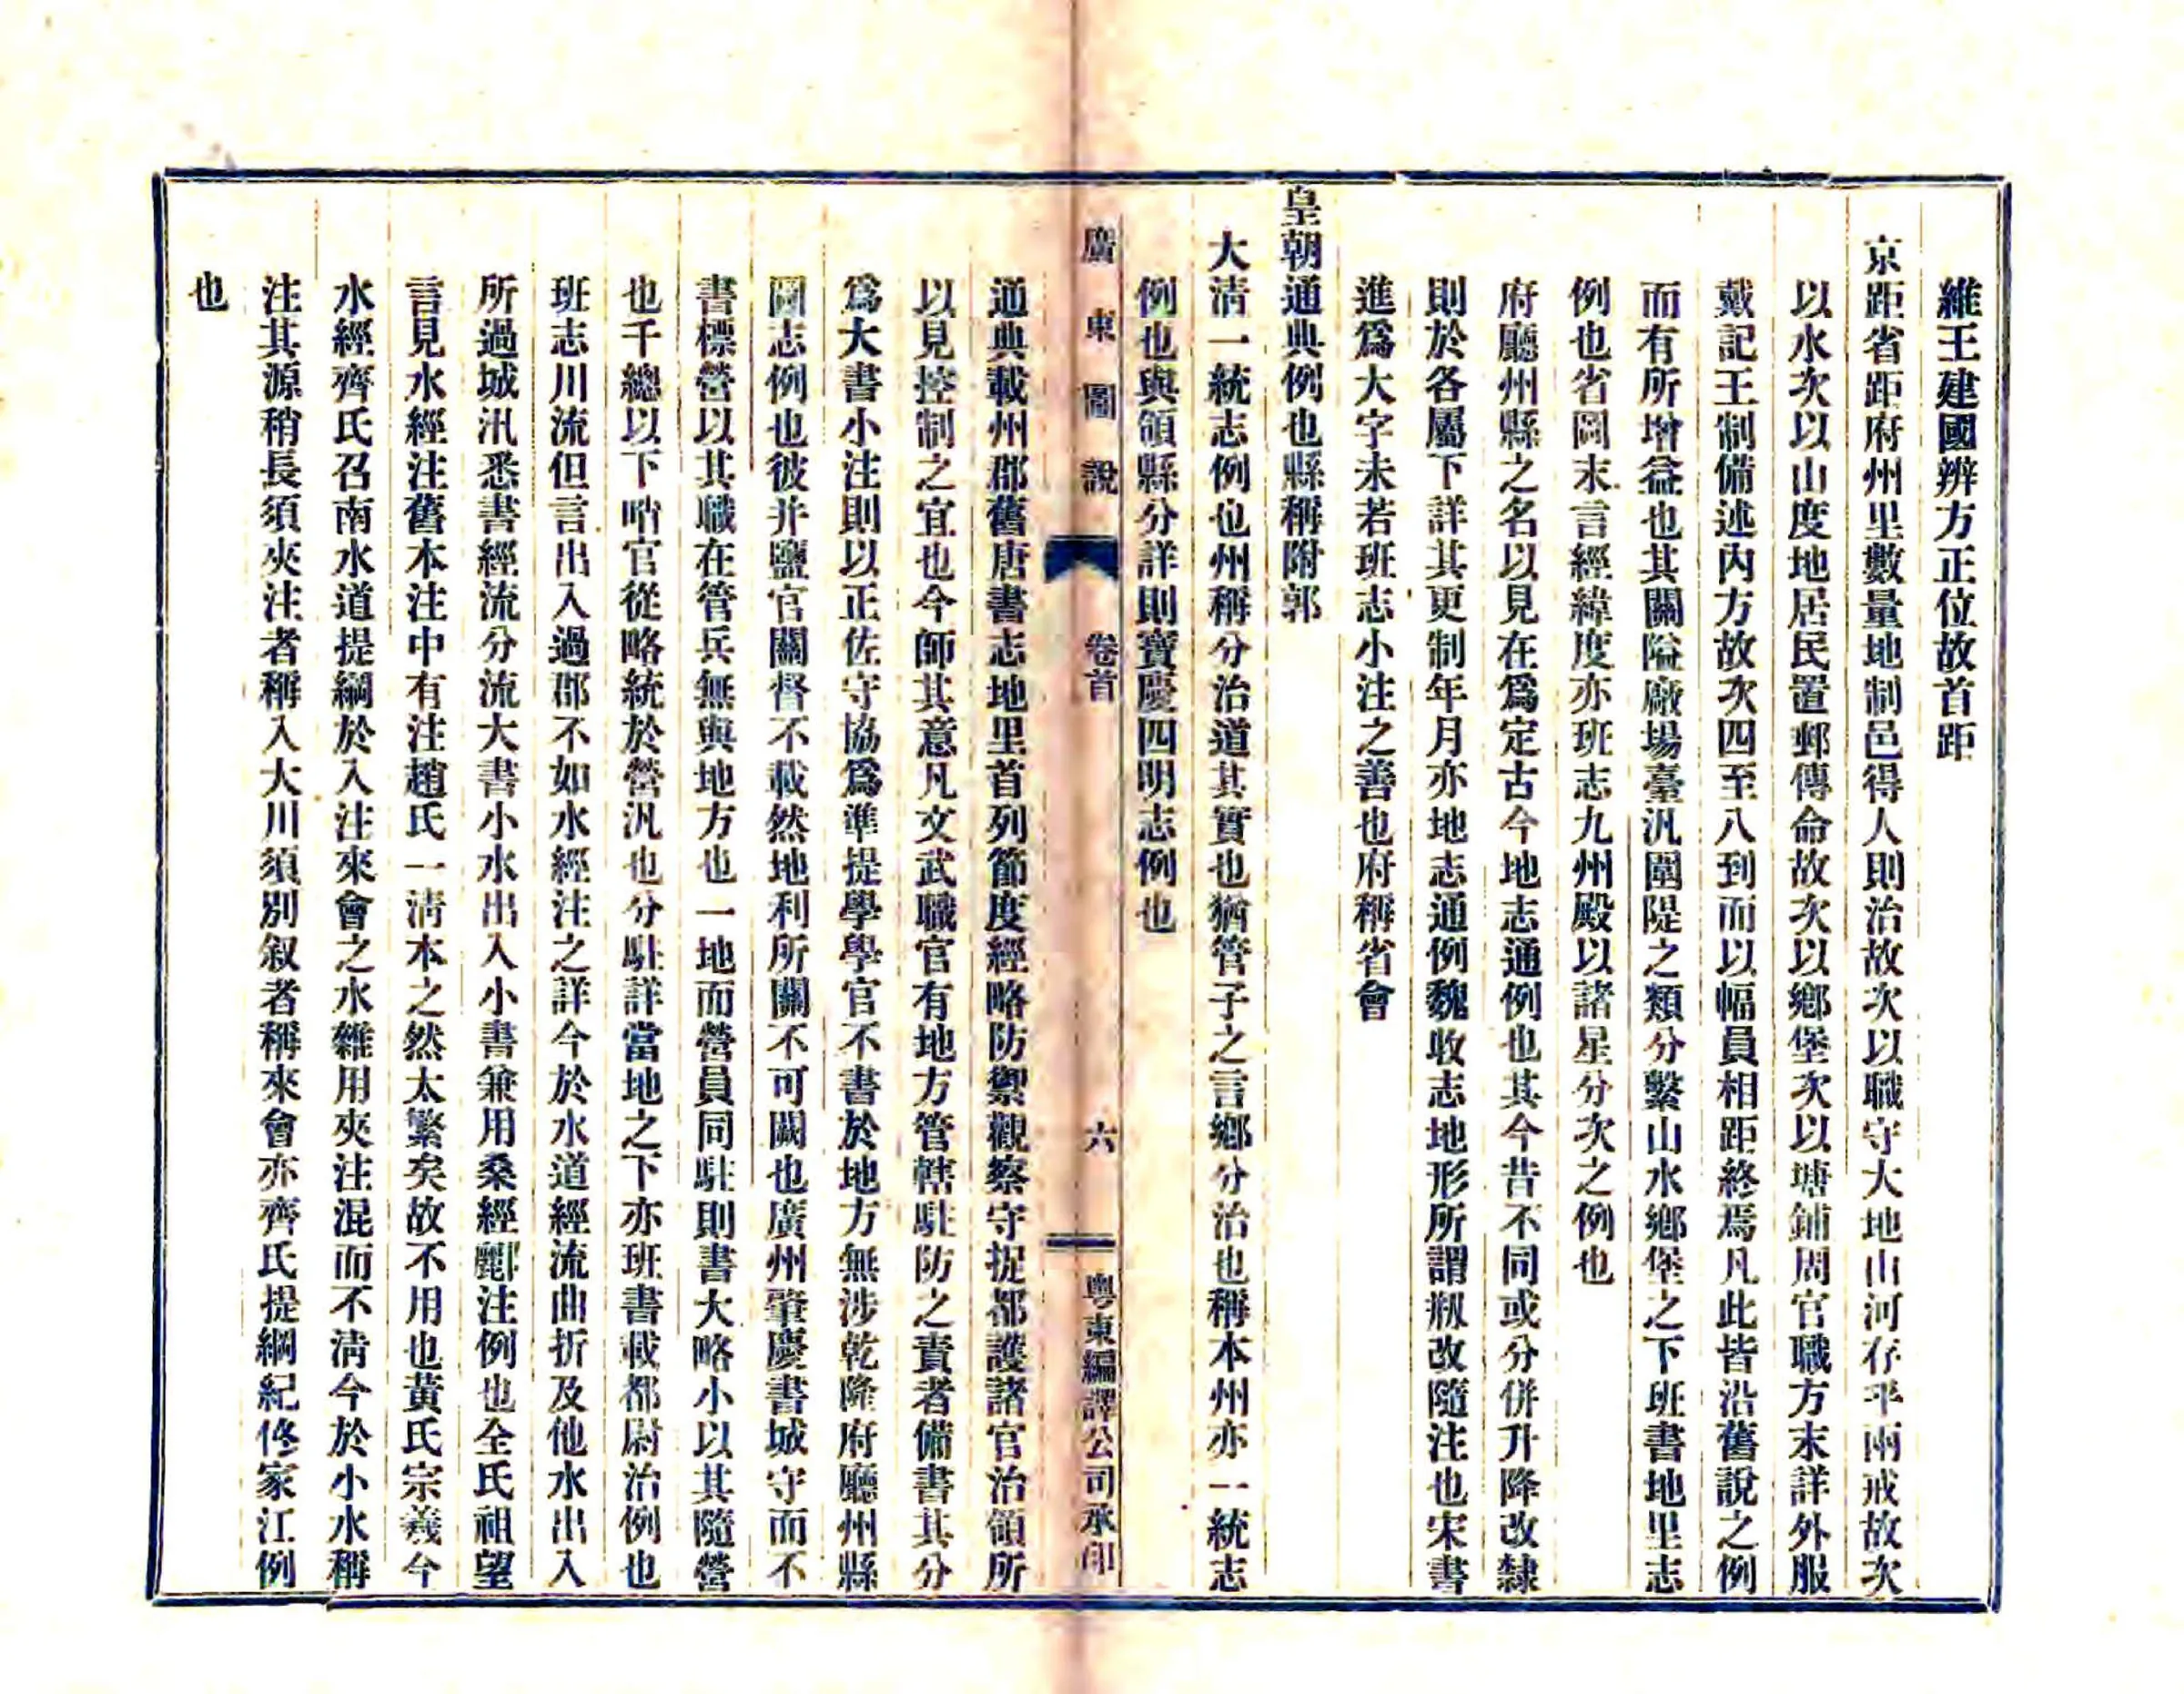 維王建國辨方正位故首距
京距省距府州里數量地制邑得人則治故次以職守大地山河存乎兩戒故次
以水次以山度地居民置郵傳命故次以鄉堡次以塘鋪周官職方末詳外服
戴記王制備述內方故次四至八到而以幅員相距終焉凡此皆沿舊說之例
而有所增益也其關隘廠場臺汛圍隄之類分繫山水鄉堡之下班書地里志
例也省圖末言經緯度亦班志九州殿以諸星分次之例也
府廳州縣之名以見在爲定古今地志通例也其今昔不同或分併升降改隸
則於各屬下詳其更制年月亦地志通例魏收志地形所謂剏改隨注也宋書
進爲大字未若班志小注之善也府稱省會
皇朝通典例也縣稱附郭
大淸一統志例也州稱分治道其實也猶管子之言鄉分治也稱本州亦一統志
例也與領縣分詳則寶慶四明志例也
廣東圖說 卷首 六 粵東編譯公司承印
通典載州郡舊唐書志地里首列節度經略防禦觀察守捉都護諸官治領所
以見控制之宜也今師其意凡文武職官有地方管轄駐防之責者備書其分
爲大書小注則以正佐守協爲準提學學官不書於地方無涉乾隆府廳州縣
圖志例也彼并鹽官關督不載然地利所關不可闕也廣州肇慶書城守而不
書標營以其職在管兵無與地方也一地而營員同駐則書大略小以其隨營
也千總以下哨官從略統於營汛也分駐詳當地之下亦班書載都尉治例也
班志川流但言出入過郡不如水經注之詳今於水道經流曲折及他水出入
所過城汛悉書經流分流大書小水出入小書兼用桑經酈注例也全氏祖望
言見水經注舊本注中有注趙氏一淸本之然太繁矣故不用也黃氏宗羲今
水經齊氏召南水道提綱於入注來會之水雜用夾注混而不淸今於小水稱
注其源稍長須夾注者稱入大川須別叙者稱來會亦齊氏提綱紀佟家江例
也